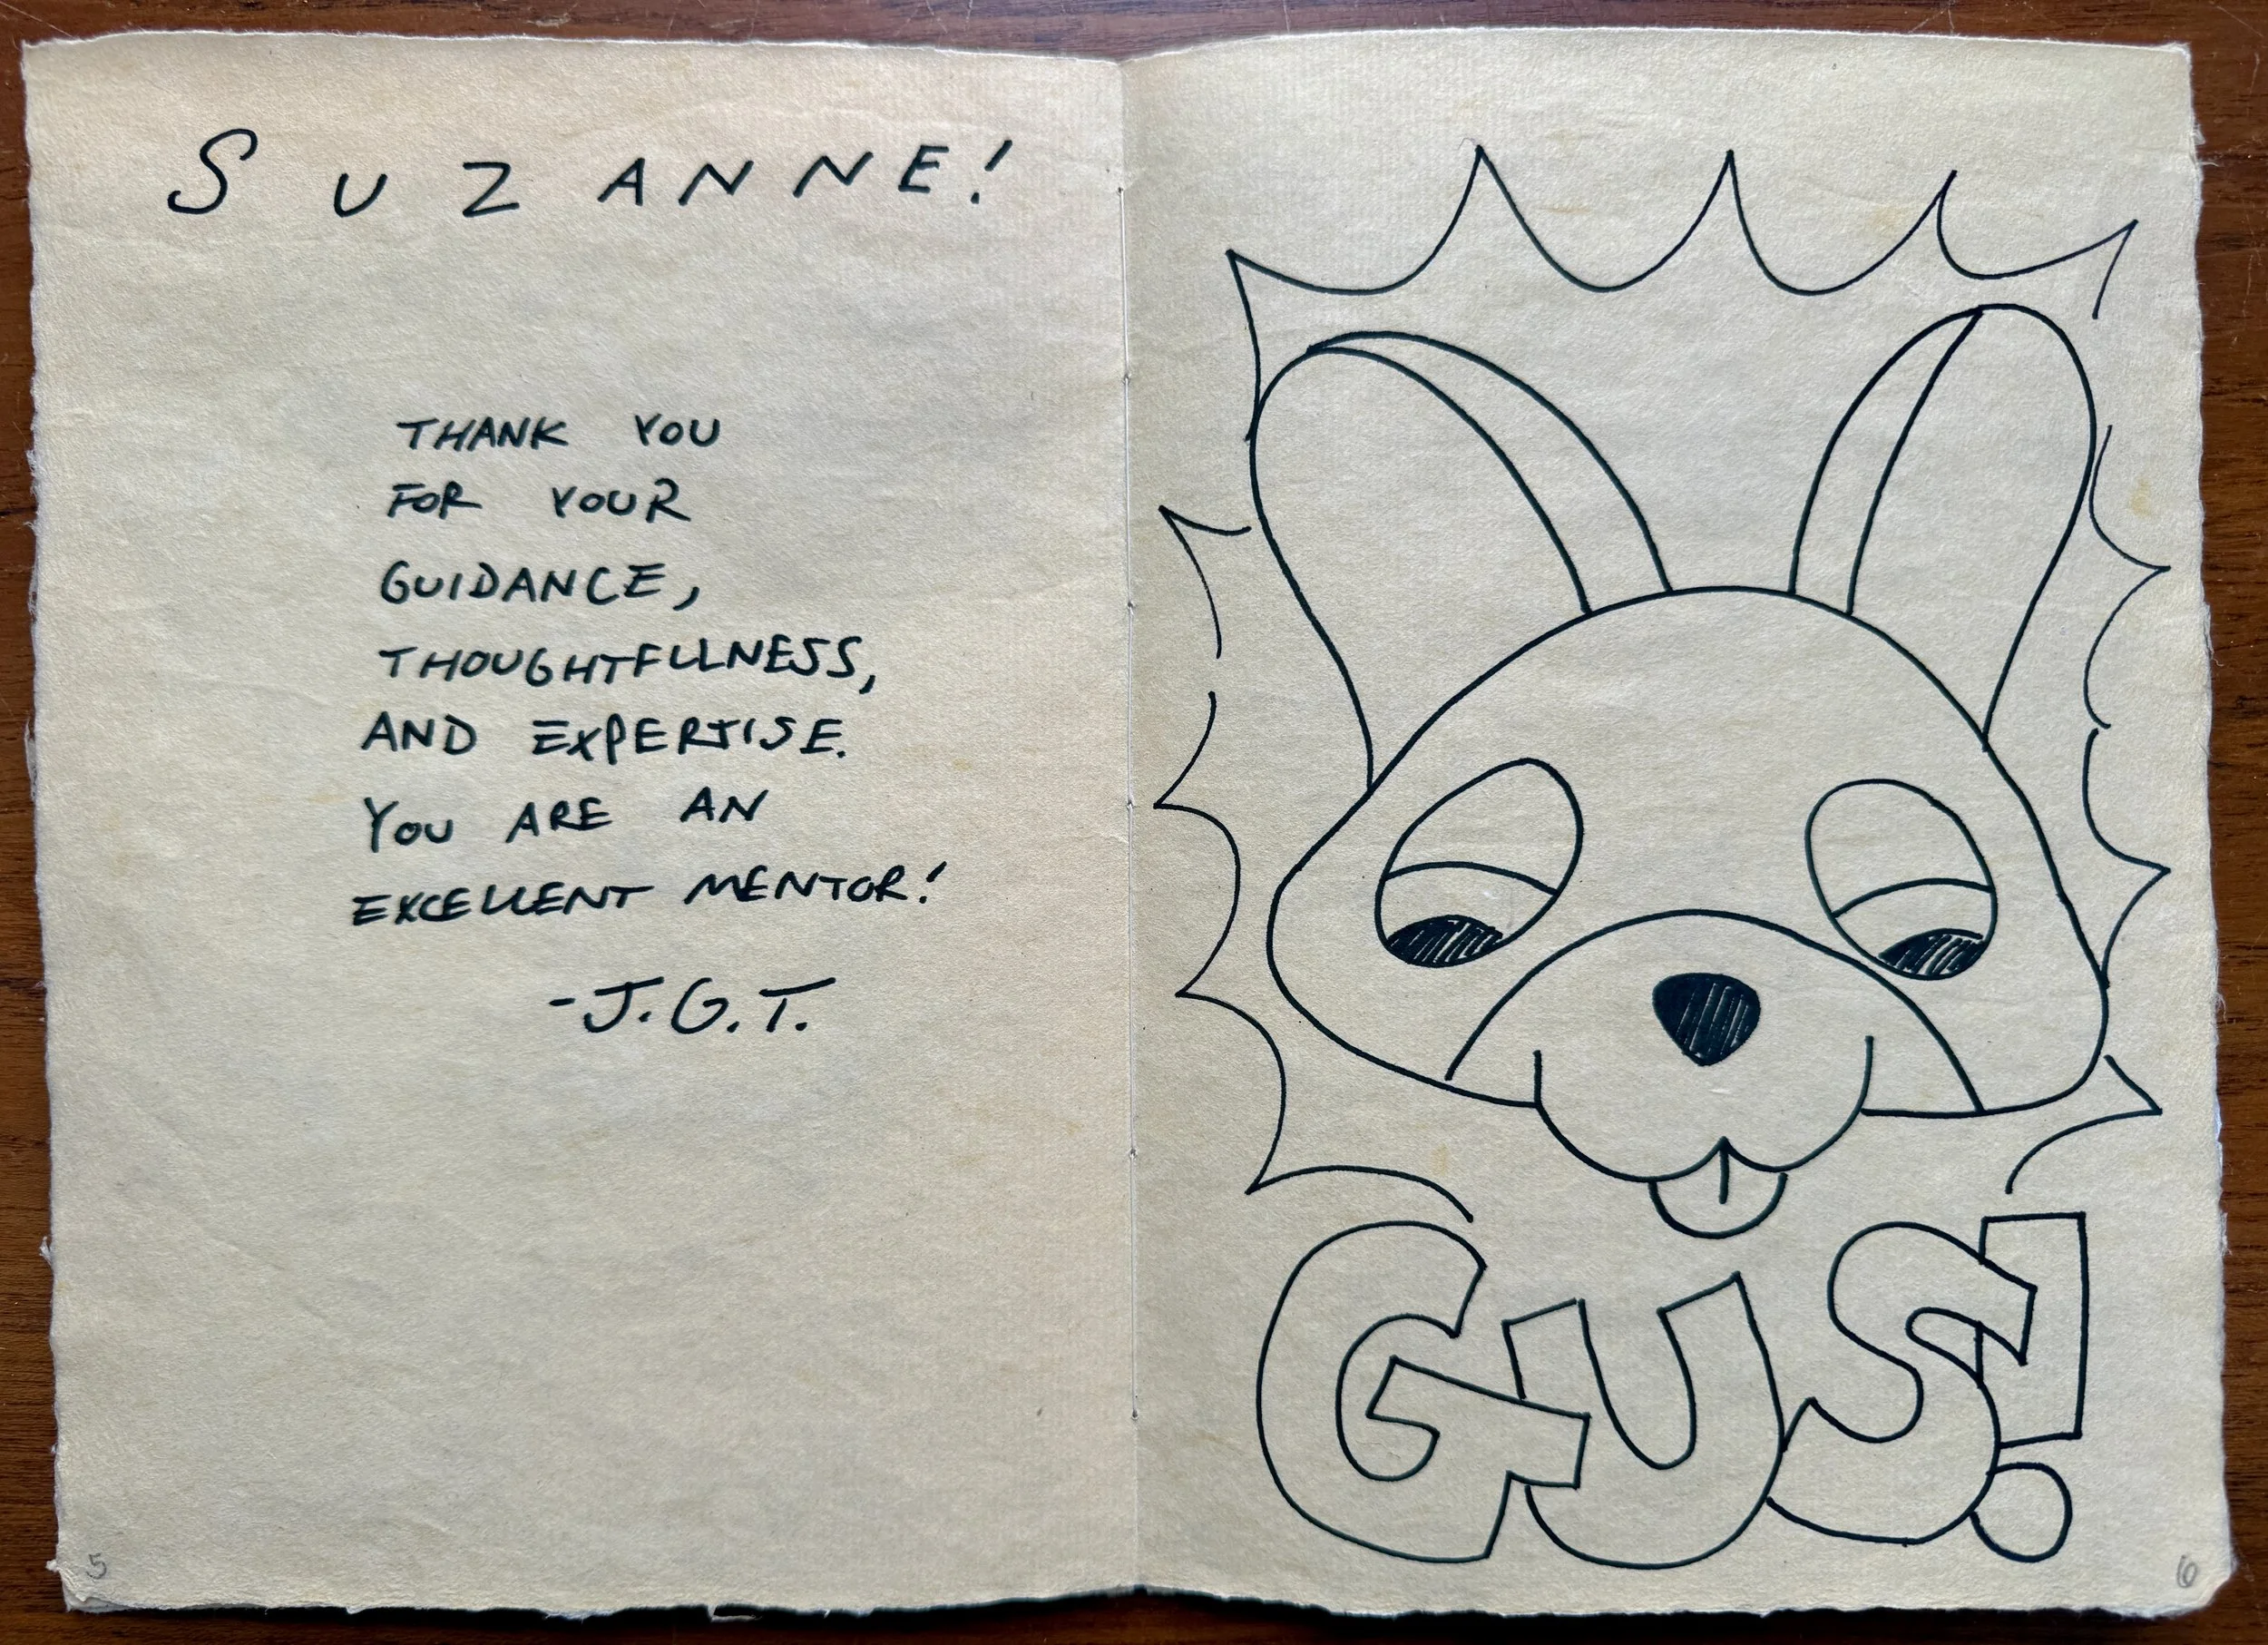 SUZANNE!
THANK YOU
FOR YOUR
GUIDANCE,
THOUGHTFULNESS,
AND EXPERTISE.
YOU ARE AN
EXCELLENT MENTOR!
-J.G.T.
5
GUS!
6